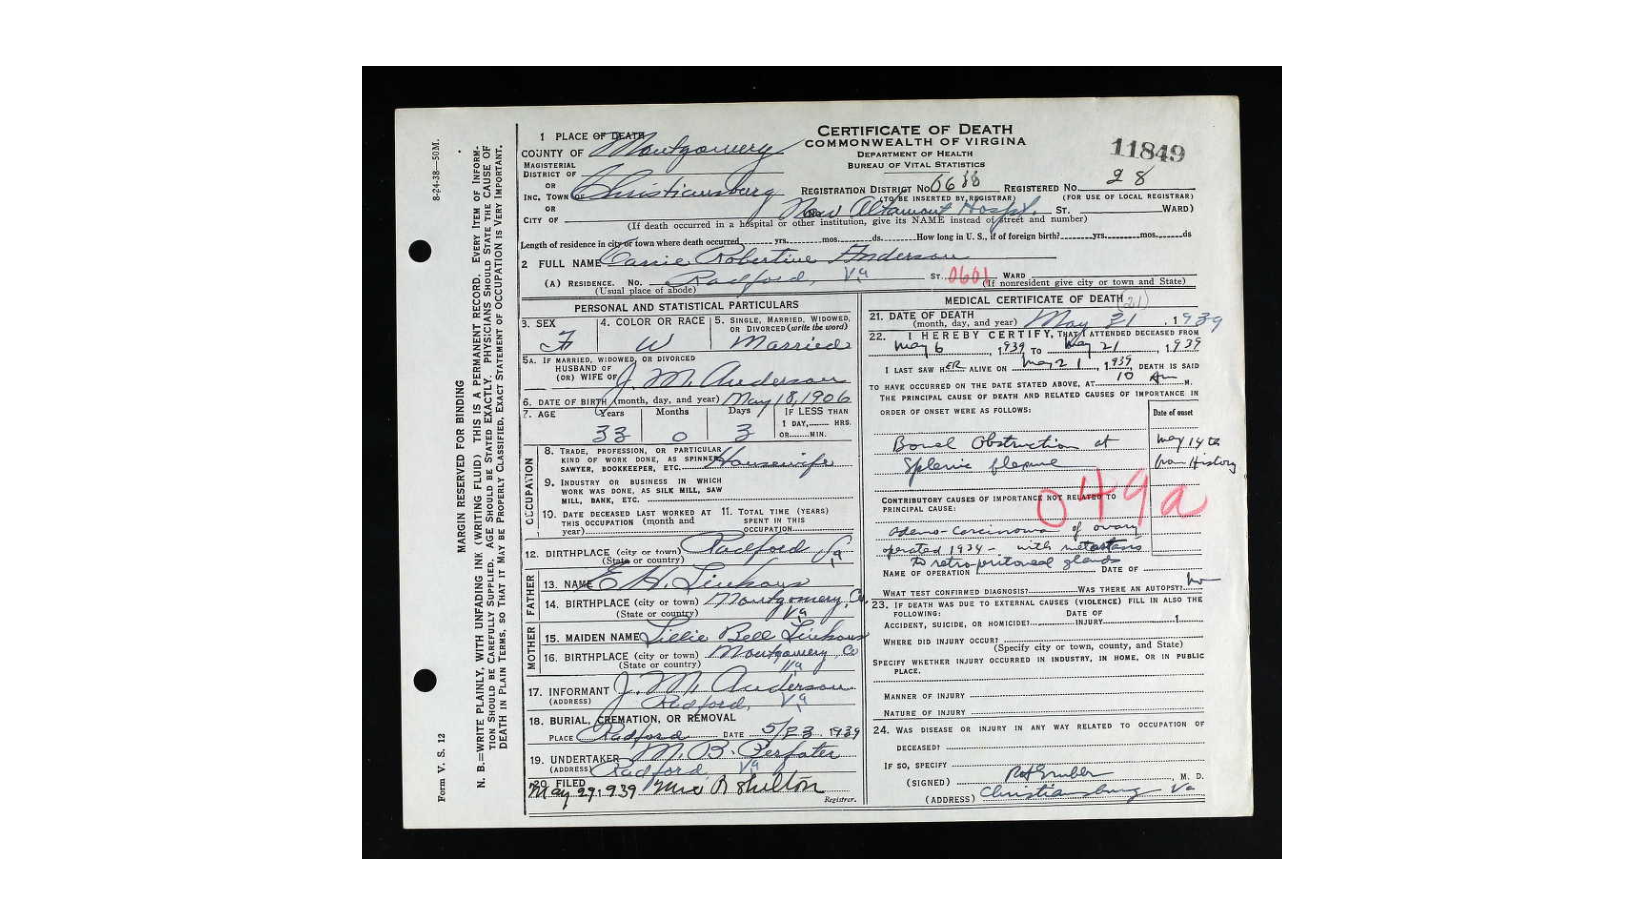 8-24-38—50M.
MARGIN RESERVED FOR BINDING
N. B.—WRITE PLAINLY, WITH UNFADING INK (WRITING FLUID) THIS IS A PERMANENT RECORD. EVERY ITEM OF INFORM-
TION SHOULD BE CAREFULLY SUPPLIED. AGE SHOULD BE STATED EXACTLY. PHYSICIANS SHOULD STATE THE CAUSE OF
DEATH IN PLAIN TERMS, SO THAT IT MAY BE PROPERLY CLASSIFIED. EXACT STATEMENT OF OCCUPATION IS VERY IMPORTANT.
Form V. S. 12
CERTIFICATE OF DEATH
COMMONWEALTH OF VIRGINIA
DEPARTMENT OF HEALTH
BUREAU OF VITAL STATISTICS
11849
1 PLACE OF DEATH
COUNTY OF Montgomery
MAGISTERIAL
DISTRICT OF
OR
INC. TOWN OF Christiansburg
OR
CITY OF
REGISTRATION DISTRICT No. 0638 REGISTERED No. 28
(TO BE INSERTED BY REGISTRAR) (FOR USE OF LOCAL REGISTRAR)
New Altamont Hospt. ST. WARD)
(If death occurred in a hospital or other institution, give its NAME instead of street and number)
Length of residence in city or town where death occurred yrs. mos. ds. How long in U. S., if of foreign birth? yrs. mos. ds
2 FULL NAME Cassie Robertine Anderson
(A) RESIDENCE. No. Radford, Va ST. 0601 WARD
(Usual place of abode) (If nonresident give city or town and State)
PERSONAL AND STATISTICAL PARTICULARS
3. SEX 4. COLOR OR RACE 5. SINGLE, MARRIED, WIDOWED,
OR DIVORCED (write the word)
F W Married
5A. IF MARRIED, WIDOWED, OR DIVORCED
HUSBAND OF
(OR) WIFE OF J. M. Anderson
6. DATE OF BIRTH (month, day, and year) May 18, 1906
7. AGE Years Months Days IF LESS THAN
1 DAY, HRS.
OR MIN.
33 0 3
OCCUPATION
8. TRADE, PROFESSION, OR PARTICULAR
KIND OF WORK DONE, AS SPINNER,
SAWYER, BOOKKEEPER, ETC. Housewife
9. INDUSTRY OR BUSINESS IN WHICH
WORK WAS DONE, AS SILK MILL, SAW
MILL, BANK, ETC.
10. DATE DECEASED LAST WORKED AT
THIS OCCUPATION (month and
year)
11. TOTAL TIME (YEARS)
SPENT IN THIS
OCCUPATION
12. BIRTHPLACE (city or town) Radford Va
(State or country)
FATHER
13. NAME E H. Linkous
14. BIRTHPLACE (city or town) Montgomery, Co.
(State or country) Va
MOTHER
15. MAIDEN NAME Lillie Bell Linkous
16. BIRTHPLACE (city or town) Montgomery, Co
(State or country) Va
17. INFORMANT J. M. Anderson
(ADDRESS) Radford, Va
18. BURIAL, CREMATION, OR REMOVAL
PLACE Radford DATE 5/23 1939
19. UNDERTAKER M. B. Perfater
(ADDRESS) Radford, Va
20. FILED
May 29, 1939 Shelton
Registrar.
MEDICAL CERTIFICATE OF DEATH (21)
21. DATE OF DEATH
(month, day, and year) May 21, 1939
22. I HEREBY CERTIFY, THAT I ATTENDED DECEASED FROM
May 6, 1939 TO May 21, 1939
I LAST SAW HER ALIVE ON May 21, 1939 DEATH IS SAID
TO HAVE OCCURRED ON THE DATE STATED ABOVE, AT 10 Am M.
THE PRINCIPAL CAUSE OF DEATH AND RELATED CAUSES OF IMPORTANCE IN
ORDER OF ONSET WERE AS FOLLOWS: Date of onset
Bowel Obstruction at May 14th
Splenic flexure from History
049a
CONTRIBUTORY CAUSES OF IMPORTANCE NOT RELATED TO
PRINCIPAL CAUSE:
Adeno-Carcinoma of ovary
operated 1934 - with metastasis
to retroperitoneal glands
NAME OF OPERATION DATE OF
WHAT TEST CONFIRMED DIAGNOSIS? WAS THERE AN AUTOPSY? no
23. IF DEATH WAS DUE TO EXTERNAL CAUSES (VIOLENCE) FILL IN ALSO THE
FOLLOWING: DATE OF
ACCIDENT, SUICIDE, OR HOMICIDE? INJURY 1
WHERE DID INJURY OCCUR?
(Specify city or town, county, and State)
SPECIFY WHETHER INJURY OCCURRED IN INDUSTRY, IN HOME, OR IN PUBLIC
PLACE.
MANNER OF INJURY
NATURE OF INJURY
24. WAS DISEASE OR INJURY IN ANY WAY RELATED TO OCCUPATION OF
DECEASED?
IF SO, SPECIFY
(SIGNED) Gruber, M. D.
(ADDRESS) Christiansburg Va